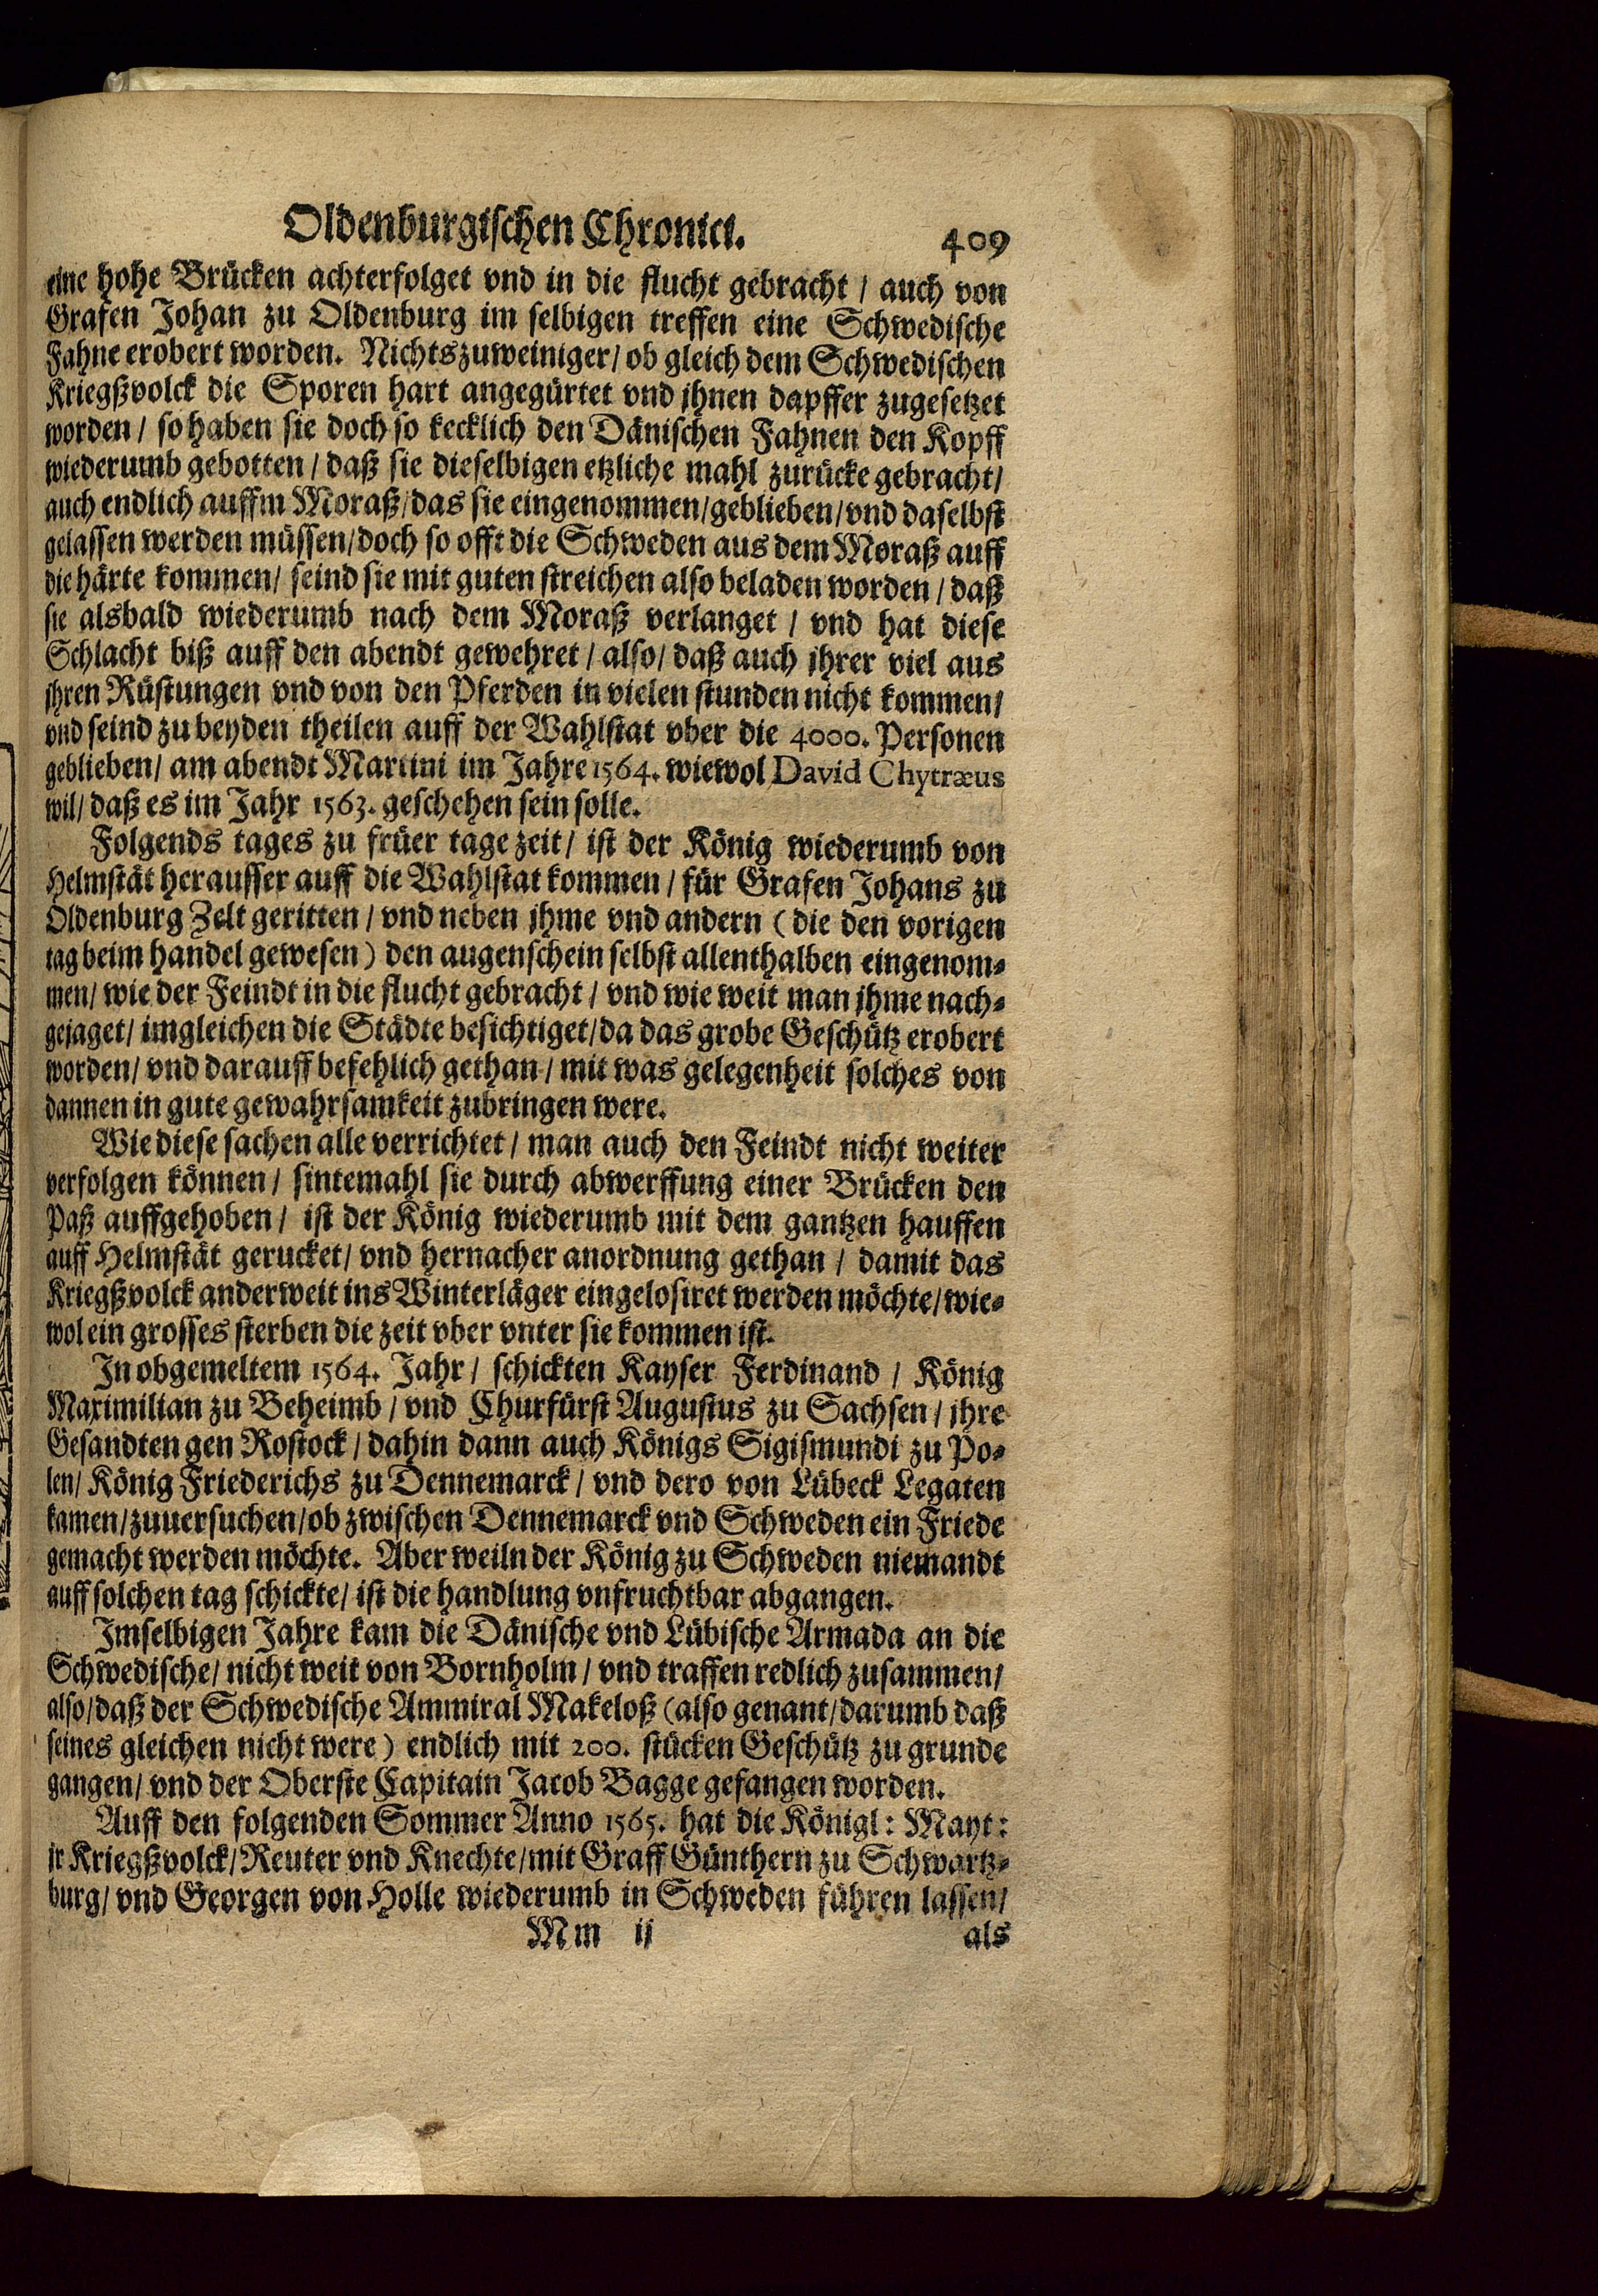 Oldenburgischen Chronici. 409
eine hohe Brücken achterfolget vnd in die flucht gebracht / auch von
Grafen Johan zu Oldenburg im selbigen treffen eine Schwedische
Fahne erobert worden. Nichtszuweiniger / ob gleich dem Schwedischen
Kriegßvolck die Sporen hart angegürtet vnd jhnen dapffer zugesetzet
worden / so haben sie doch so kecklich den Dänischen Fahnen den Kopff
wiederumb gebotten / daß sie dieselbigen etzliche mahl zurücke gebracht /
auch endlich auffm Moraß / das sie eingenommen / geblieben / vnd daselbst
gelassen werden müssen / doch so offt die Schweden aus dem Moraß auff
die härte kommen / seind sie mit guten streichen also beladen worden / daß
sie alsbald wiederumb nach dem Moraß verlanget / vnd hat diese
Schlacht biß auff den abendt gewehret / also / daß auch jhrer viel aus
jhren Rüstungen vnd von den Pferden in vielen stunden nicht kommen /
vnd seind zu beyden theilen auff der Wahlstat vber die 4000. Personen
geblieben / am abendt Martini im Jahre 1564. wiewol David Chytræus
wil / daß es im Jahr 1563. geschehen sein solle.
Folgends tages zu früer tage zeit / ist der König wiederumb von
Helmstät herausser auff die Wahlstat kommen / für Grafen Johans zu
Oldenburg Zelt geritten / vnd neben jhme vnd andern (die den vorigen
tag beim handel gewesen) den augenschein selbst allenthalben eingenom⸗
men / wie der Feindt in die flucht gebracht / vnd wie weit man jhme nach⸗
gejaget / imgleichen die Städte besichtiget / da das grobe Geschütz erobert
worden / vnd darauff befehlich gethan / mit was gelegenheit solches von
dannen in gute gewahrsamkeit zubringen were.
Wie diese sachen alle verrichtet / man auch den Feindt nicht weiter
verfolgen können / sintemahl sie durch abwerffung einer Brücken den
Paß auffgehoben / ist der König wiederumb mit dem gantzen hauffen
auff Helmstät gerucket / vnd hernacher anordnung gethan / damit das
Kriegßvolck anderweit ins Winterläger eingelosiret werden möchte / wie⸗
wol ein grosses sterben die zeit vber vnter sie kommen ist.
In obgemeltem 1564. Jahr / schickten Kayser Ferdinand / König
Maximilian zu Beheimb / vnd Churfürst Augustus zu Sachsen / jhre
Gesandten gen Rostock / dahin dann auch Königs Sigismundi zu Po⸗
len / König Friederichs zu Dennemarck / vnd dero von Lübeck Legaten
kamen / zuuersuchen / ob zwischen Dennemarck vnd Schweden ein Friede
gemacht werden möchte. Aber weiln der König zu Schweden niemandt
auff solchen tag schickte / ist die handlung vnfruchtbar abgangen.
Imselbigen Jahre kam die Dänische vnd Lübische Armada an die
Schwedische / nicht weit von Bornholm / vnd traffen redlich zusammen /
also / daß der Schwedische Ammiral Makeloß (also genant / darumb daß
seines gleichen nicht were) endlich mit 200. stücken Geschütz zu grunde
gangen / vnd der Oberste Capitain Jacob Bagge gefangen worden.
Auff den folgenden Sommer Anno 1565. hat die Königl: Mayt:
jr Kriegßvolck / Reuter vnd Knechte / mit Graff Günthern zu Schwartz⸗
burg / vnd Georgen von Holle wiederumb in Schweden führen lassen /
Mm ij als